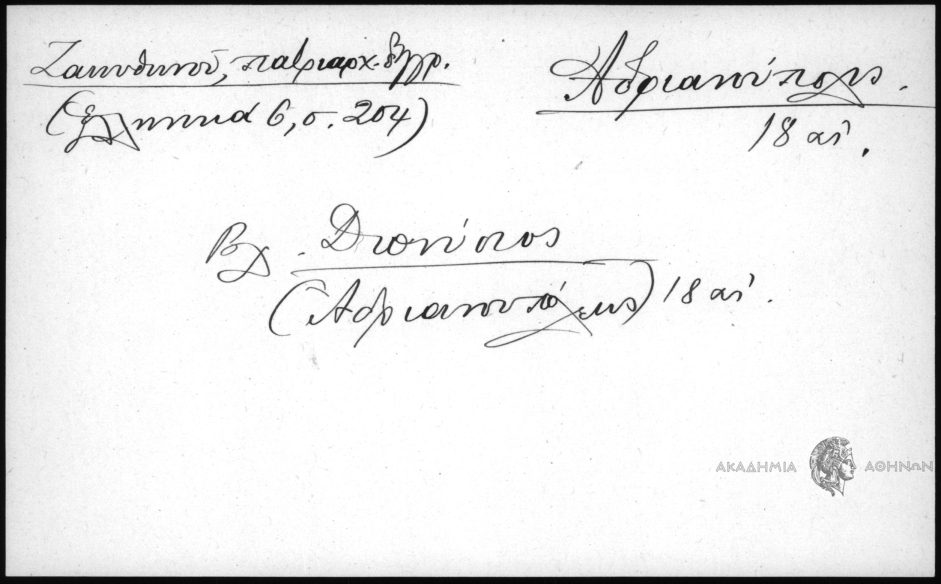 Ζακυθηνοῦ, πατριαρχ. ἔγγρ.
(Ἑλληνικά 6, σ. 204)
Ἀδριανούπολις.
18 αἰ.
Βλ. Διονύσιος
(Ἀδριανουπόλεως) 18 αἰ.
ΑΚΑΔΗΜΙΑ ΑΘΗΝΩΝ